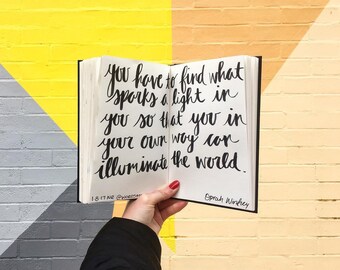 you have to find what
sparks a light in
you so that you in
your own way can
illuminate the world.
Oprah Winfrey